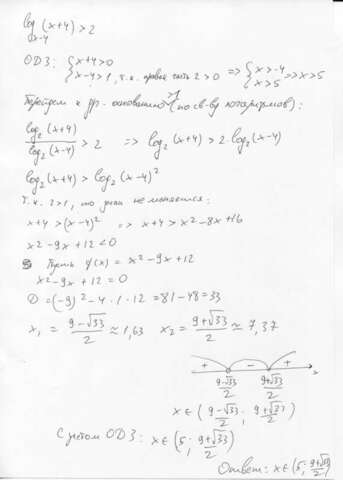 log_{x-4} (x+4) > 2
ОДЗ: { x+4>0
x-4>1, т.к. правая часть 2>0 => { x>-4
x>5 => x>5
Перейдём к др. основанию >1 (по св-ву логарифмов):
log₂(x+4) / log₂(x-4) > 2 => log₂(x+4) > 2·log₂(x-4)
log₂(x+4) > log₂(x-4)²
Т.к. 2>1, то знак не меняется:
x+4 > (x-4)² => x+4 > x²-8x+16
x²-9x+12<0
Пусть f(x) = x²-9x+12
x²-9x+12=0
D=(-9)²-4·1·12=81-48=33
x₁ = (9-√33)/2 ≈ 1,63 x₂ = (9+√33)/2 ≈ 7,37
+ - +
(9-√33)/2 (9+√33)/2 x
x∈((9-√33)/2; (9+√33)/2)
С учётом ОДЗ: x∈(5; (9+√33)/2)
Ответ: x∈(5; (9+√33)/2)